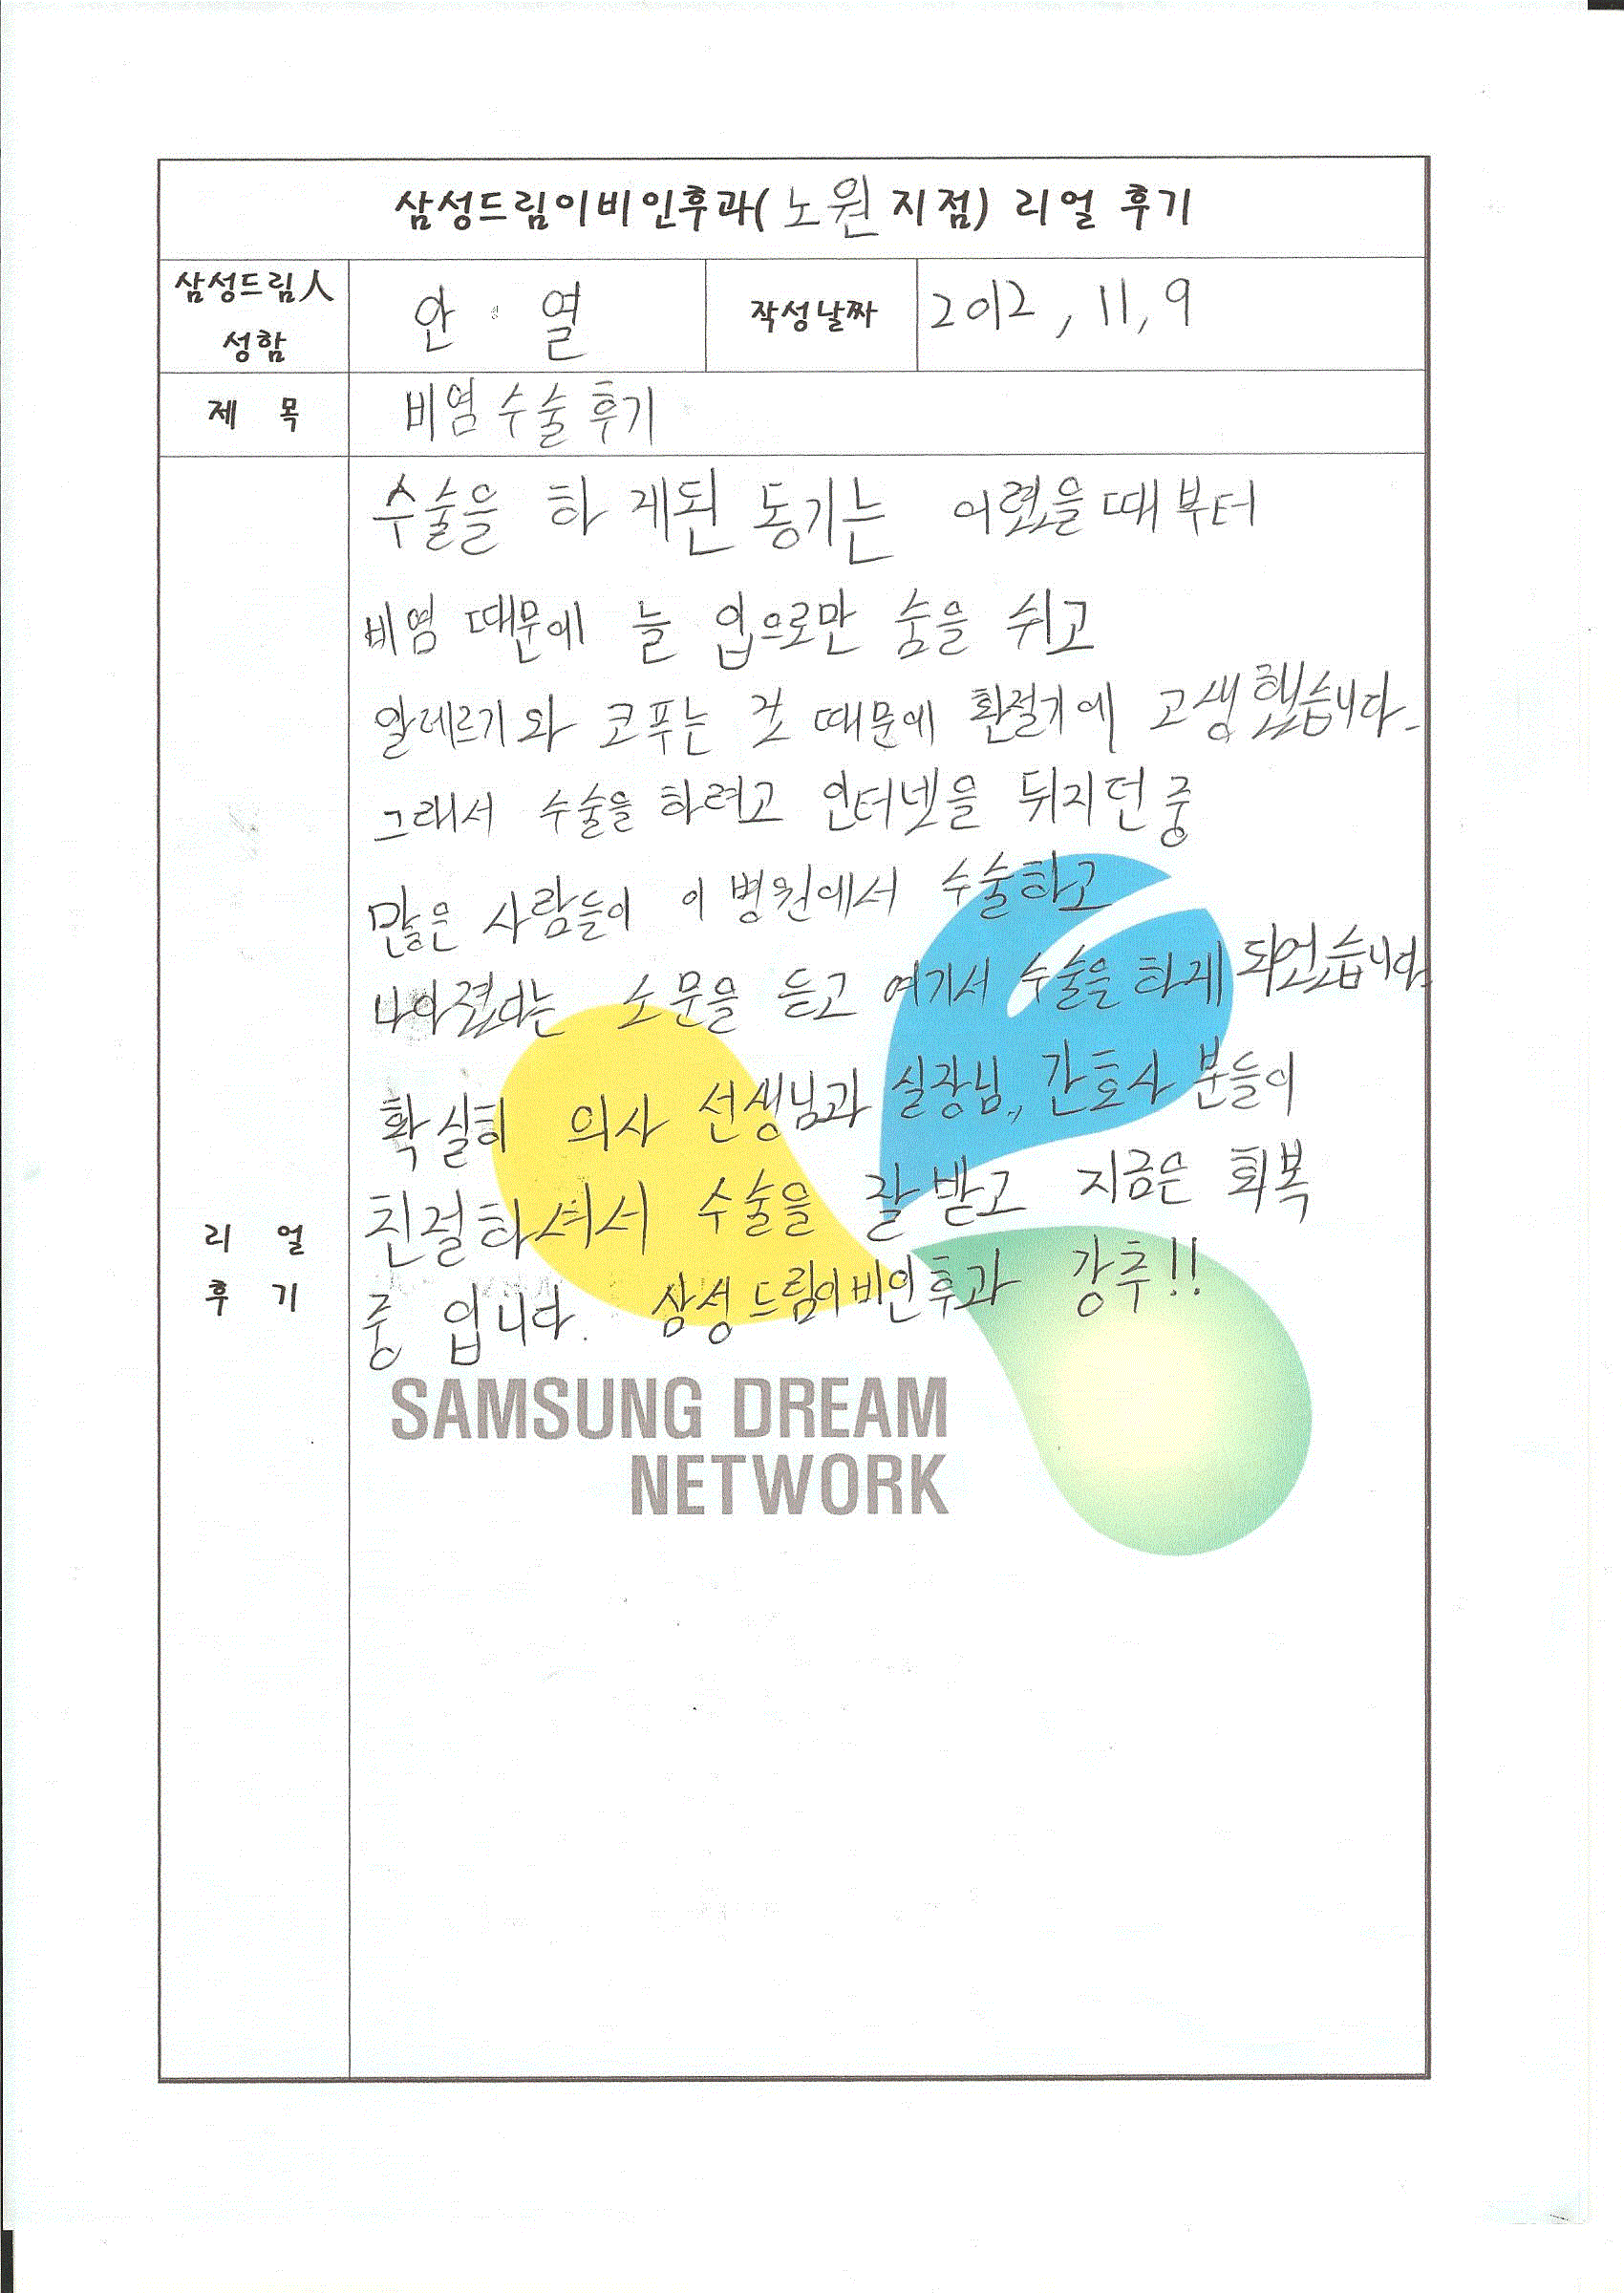 삼성드림이비인후과(노원지점) 리얼 후기
삼성드림人
성함
안 열
작성날짜
2012, 11, 9
제 목
비염수술후기
리 얼
후 기
수술을 하게된 동기는 어렸을때부터
비염 때문에 늘 입으로만 숨을 쉬고
알레르기와 코푸는 것 때문에 환절기에 고생했습니다.
그래서 수술을 하려고 인터넷을 뒤지던중
많은 사람들이 이 병원에서 수술하고
나아졌다는 소문을 듣고 여기서 수술을 하게 되었습니다.
확실히 의사 선생님과 실장님, 간호사 분들이
친절하셔서 수술을 잘받고 지금은 회복
중 입니다. 삼성드림이비인후과 강추!!
SAMSUNG DREAM
NETWORK